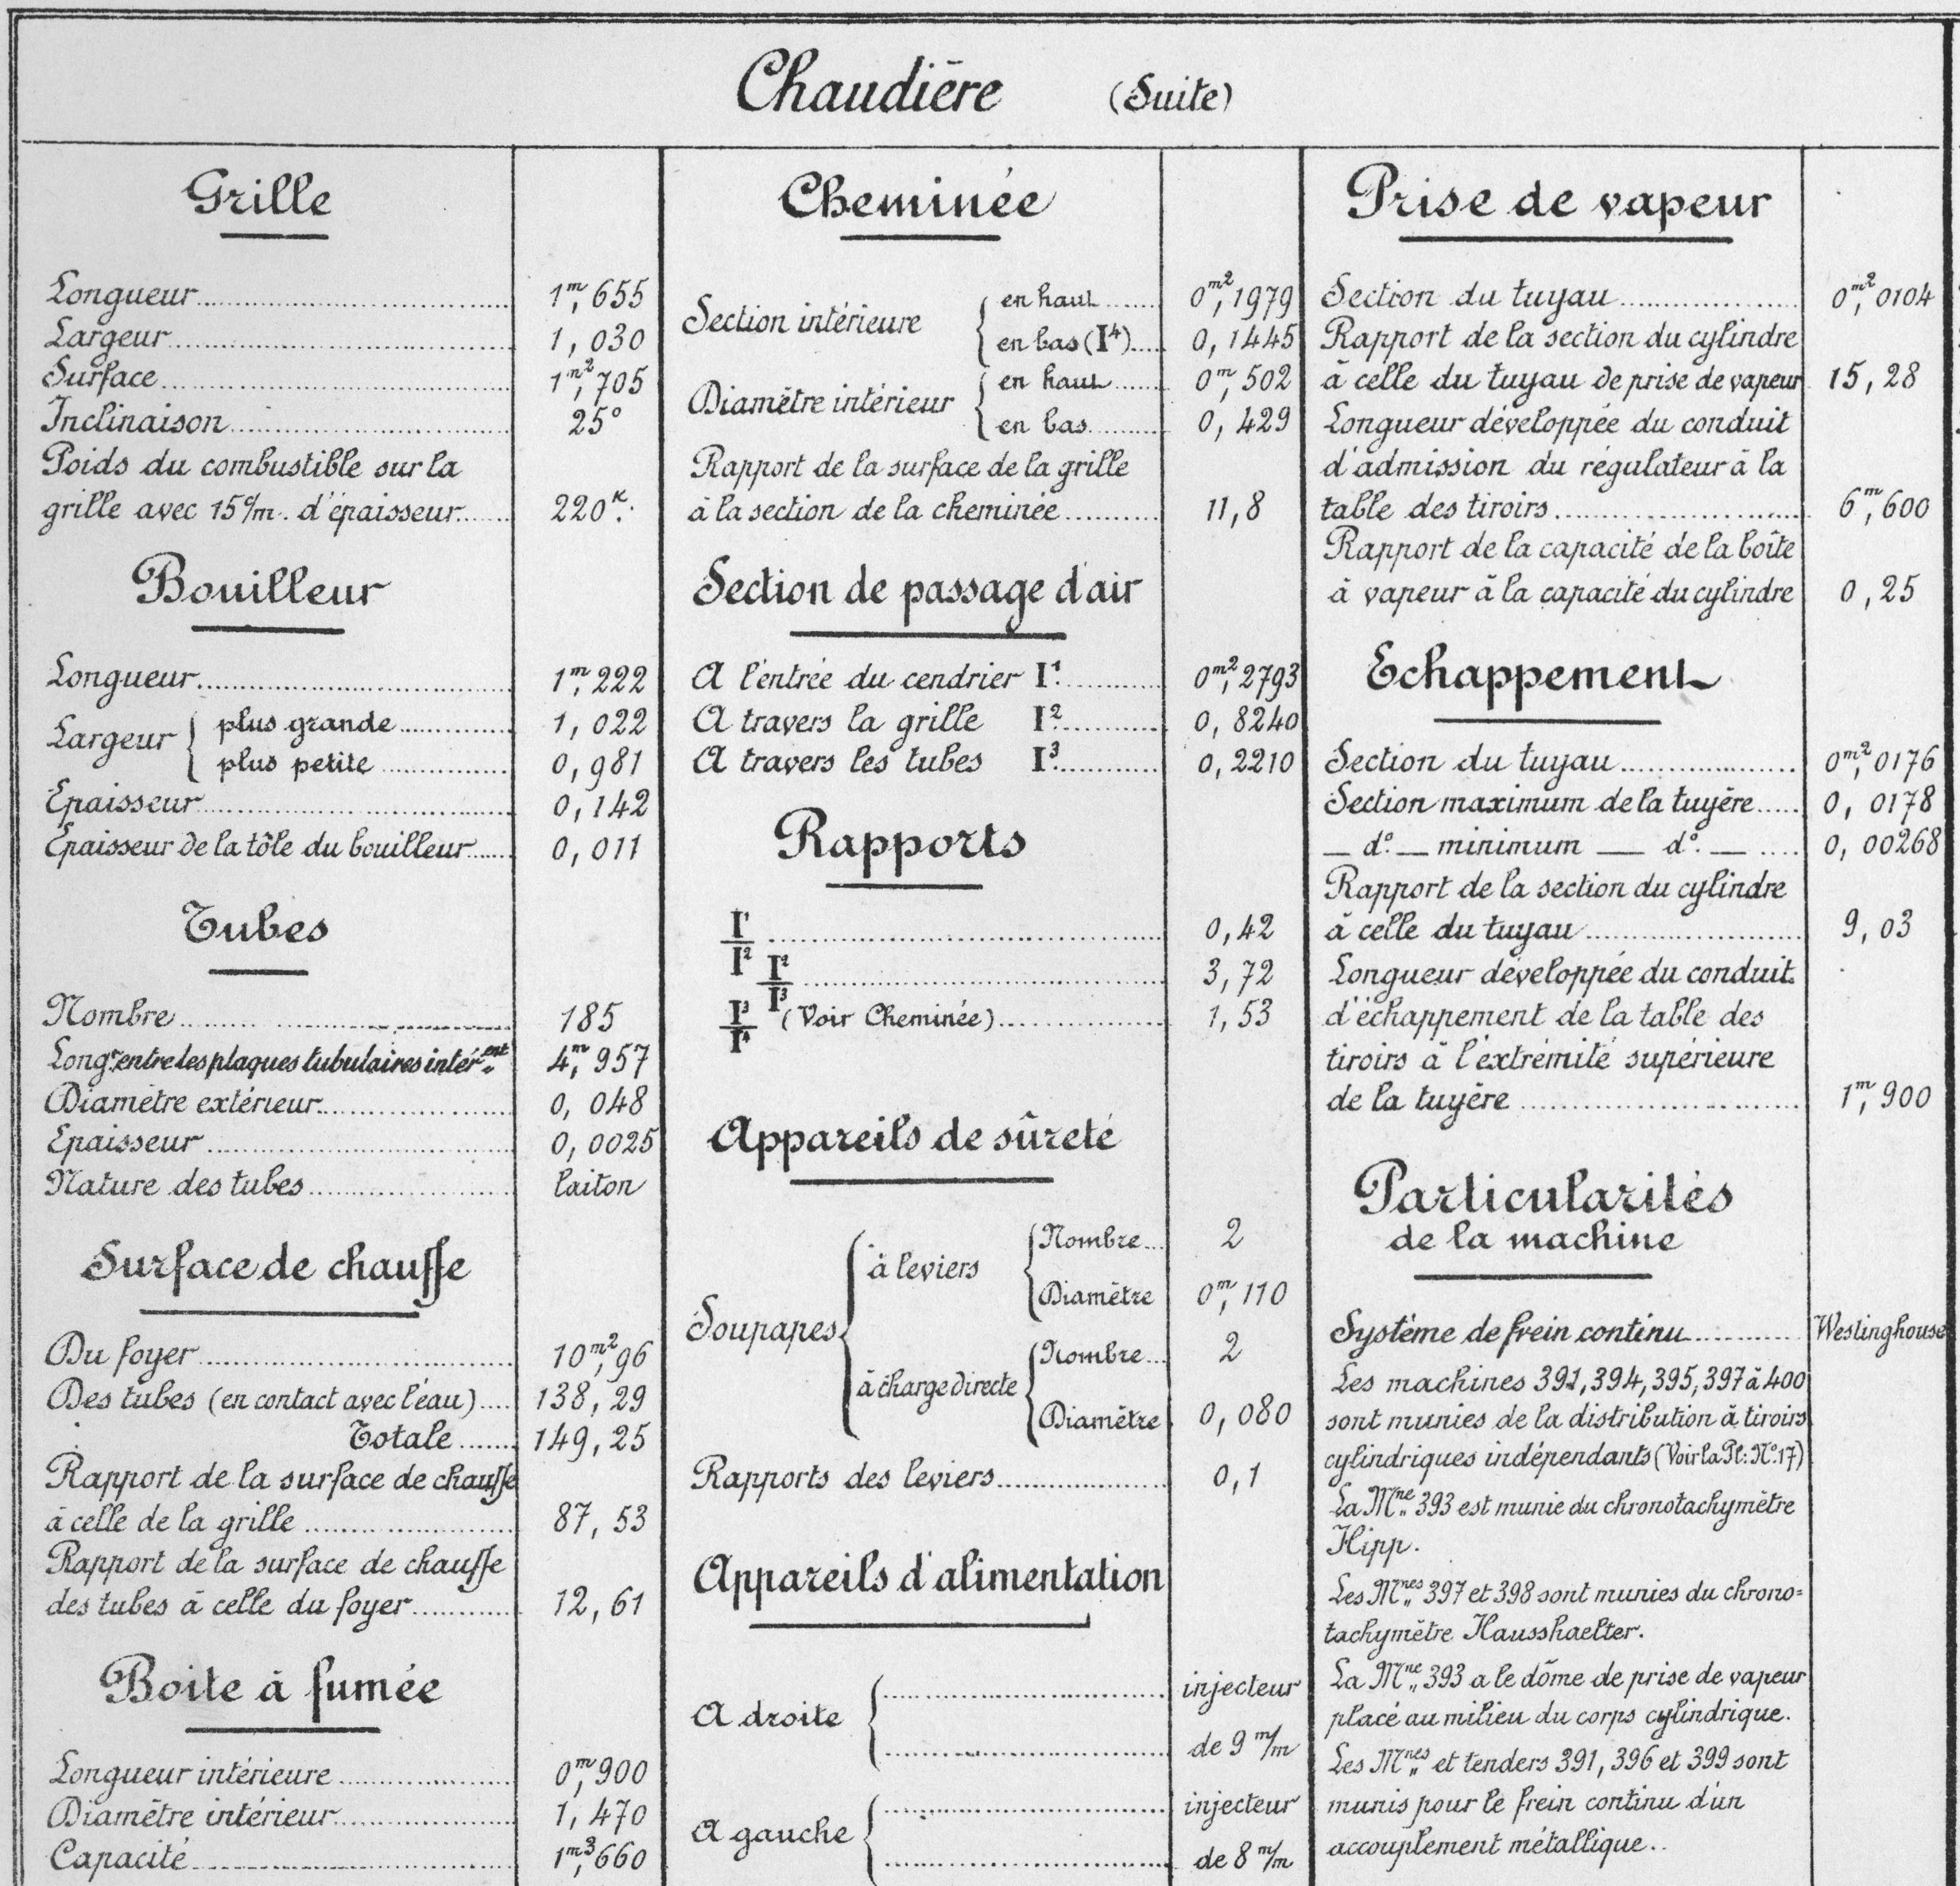 Chaudière (Suite)
Grille
Longueur 1m,655
Largeur 1,030
Surface 1m²,705
Inclinaison 25°
Poids du combustible sur la
grille avec 15c/m. d'épaisseur 220K.
Bouilleur
Longueur 1m,222
Largeur { plus grande 1,022
plus petite 0,981
Epaisseur 0,142
Epaisseur de la tôle du bouilleur 0,011
Tubes
Nombre 185
Longr. entre les plaques tubulaires intérent. 4m,957
Diamètre extérieur 0,048
Epaisseur 0,0025
Nature des tubes laiton
Surface de chauffe
Du foyer 10m²,96
Des tubes (en contact avec l'eau) 138,29
Totale 149,25
Rapport de la surface de chauffe
à celle de la grille 87,53
Rapport de la surface de chauffe
des tubes à celle du foyer 12,61
Boite à fumée
Longueur intérieure 0m,900
Diamètre intérieur 1,470
Capacité 1m³,660
Cheminée
Section intérieure { en haut 0m²,1979
en bas (I⁴) 0,1445
Diamètre intérieur { en haut 0m,502
en bas 0,429
Rapport de la surface de la grille
à la section de la cheminée 11,8
Section de passage d'air
A l'entrée du cendrier I¹ 0m²,2793
A travers la grille I² 0,8240
A travers les tubes I³ 0,2210
Rapports
I¹/I² 0,42
I²/I³ 3,72
I³/I⁴ (Voir Cheminée) 1,53
Appareils de sûreté
Soupapes { à leviers { Nombre 2
Diamètre 0m,110
à charge directe { Nombre 2
Diamètre 0,080
Rapports des leviers 0,1
Appareils d'alimentation
A droite { injecteur
de 9 m/m
A gauche { injecteur
de 8 m/m
Prise de vapeur
Section du tuyau 0m²,0104
Rapport de la section du cylindre
à celle du tuyau de prise de vapeur 15,28
Longueur développée du conduit
d'admission du régulateur à la
table des tiroirs 6m,600
Rapport de la capacité de la boîte
à vapeur à la capacité du cylindre 0,25
Echappement
Section du tuyau 0m²,0176
Section maximum de la tuyère 0,0178
— d°. — minimum — d°. — 0,00268
Rapport de la section du cylindre
à celle du tuyau 9,03
Longueur développée du conduit
d'échappement de la table des
tiroirs à l'extrémité supérieure
de la tuyère 1m,900
Particularités
de la machine
Système de frein continu Westinghouse
Les machines 391, 394, 395, 397 à 400
sont munies de la distribution à tiroirs
cylindriques indépendants (Voir la Pl: N°.17)
La Mne. 393 est munie du chronotachymètre
Hipp.
Les Mnes. 397 et 398 sont munies du chrono=
tachymètre Hausshaelter.
La Mne. 393 a le dôme de prise de vapeur
placé au milieu du corps cylindrique.
Les Mnes. et tenders 391, 396 et 399 sont
munis pour le frein continu d'un
accouplement métallique.